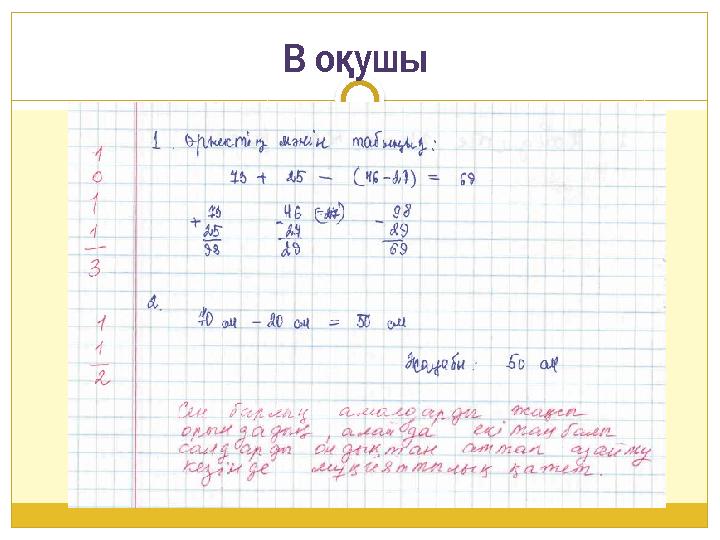 В оқушы
1. Өрнектің мәнін табыңыз:
73 + 25 – (46-27) = 69
1
0
1
1
3
+ 73 25 98
- 46 27 29
- 98 29 69
2.
70 см – 20 см = 50 см
Жауабы: 50 см
1
1
2
Сен барлық амалдарды жақсы
орындадың, алайда екі таңбалы
сандарды ондықтан аттап азайту
кезінде мұқияттылық қажет.